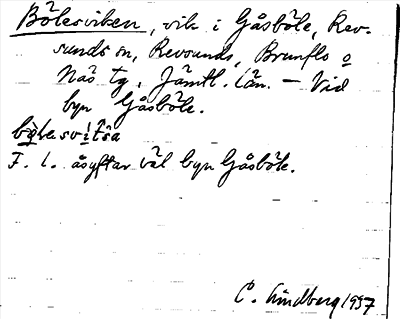 Bölesviken, vik i Gåsböle, Rev-
sunds sn, Revsunds, Brunflo o
Näs tg, Jämtl. län. – Vid
byn Gåsböle.
bø̀lesvìtʃa
F. l. åsyftar väl byn Gåsböle.
C. Lindberg 1957